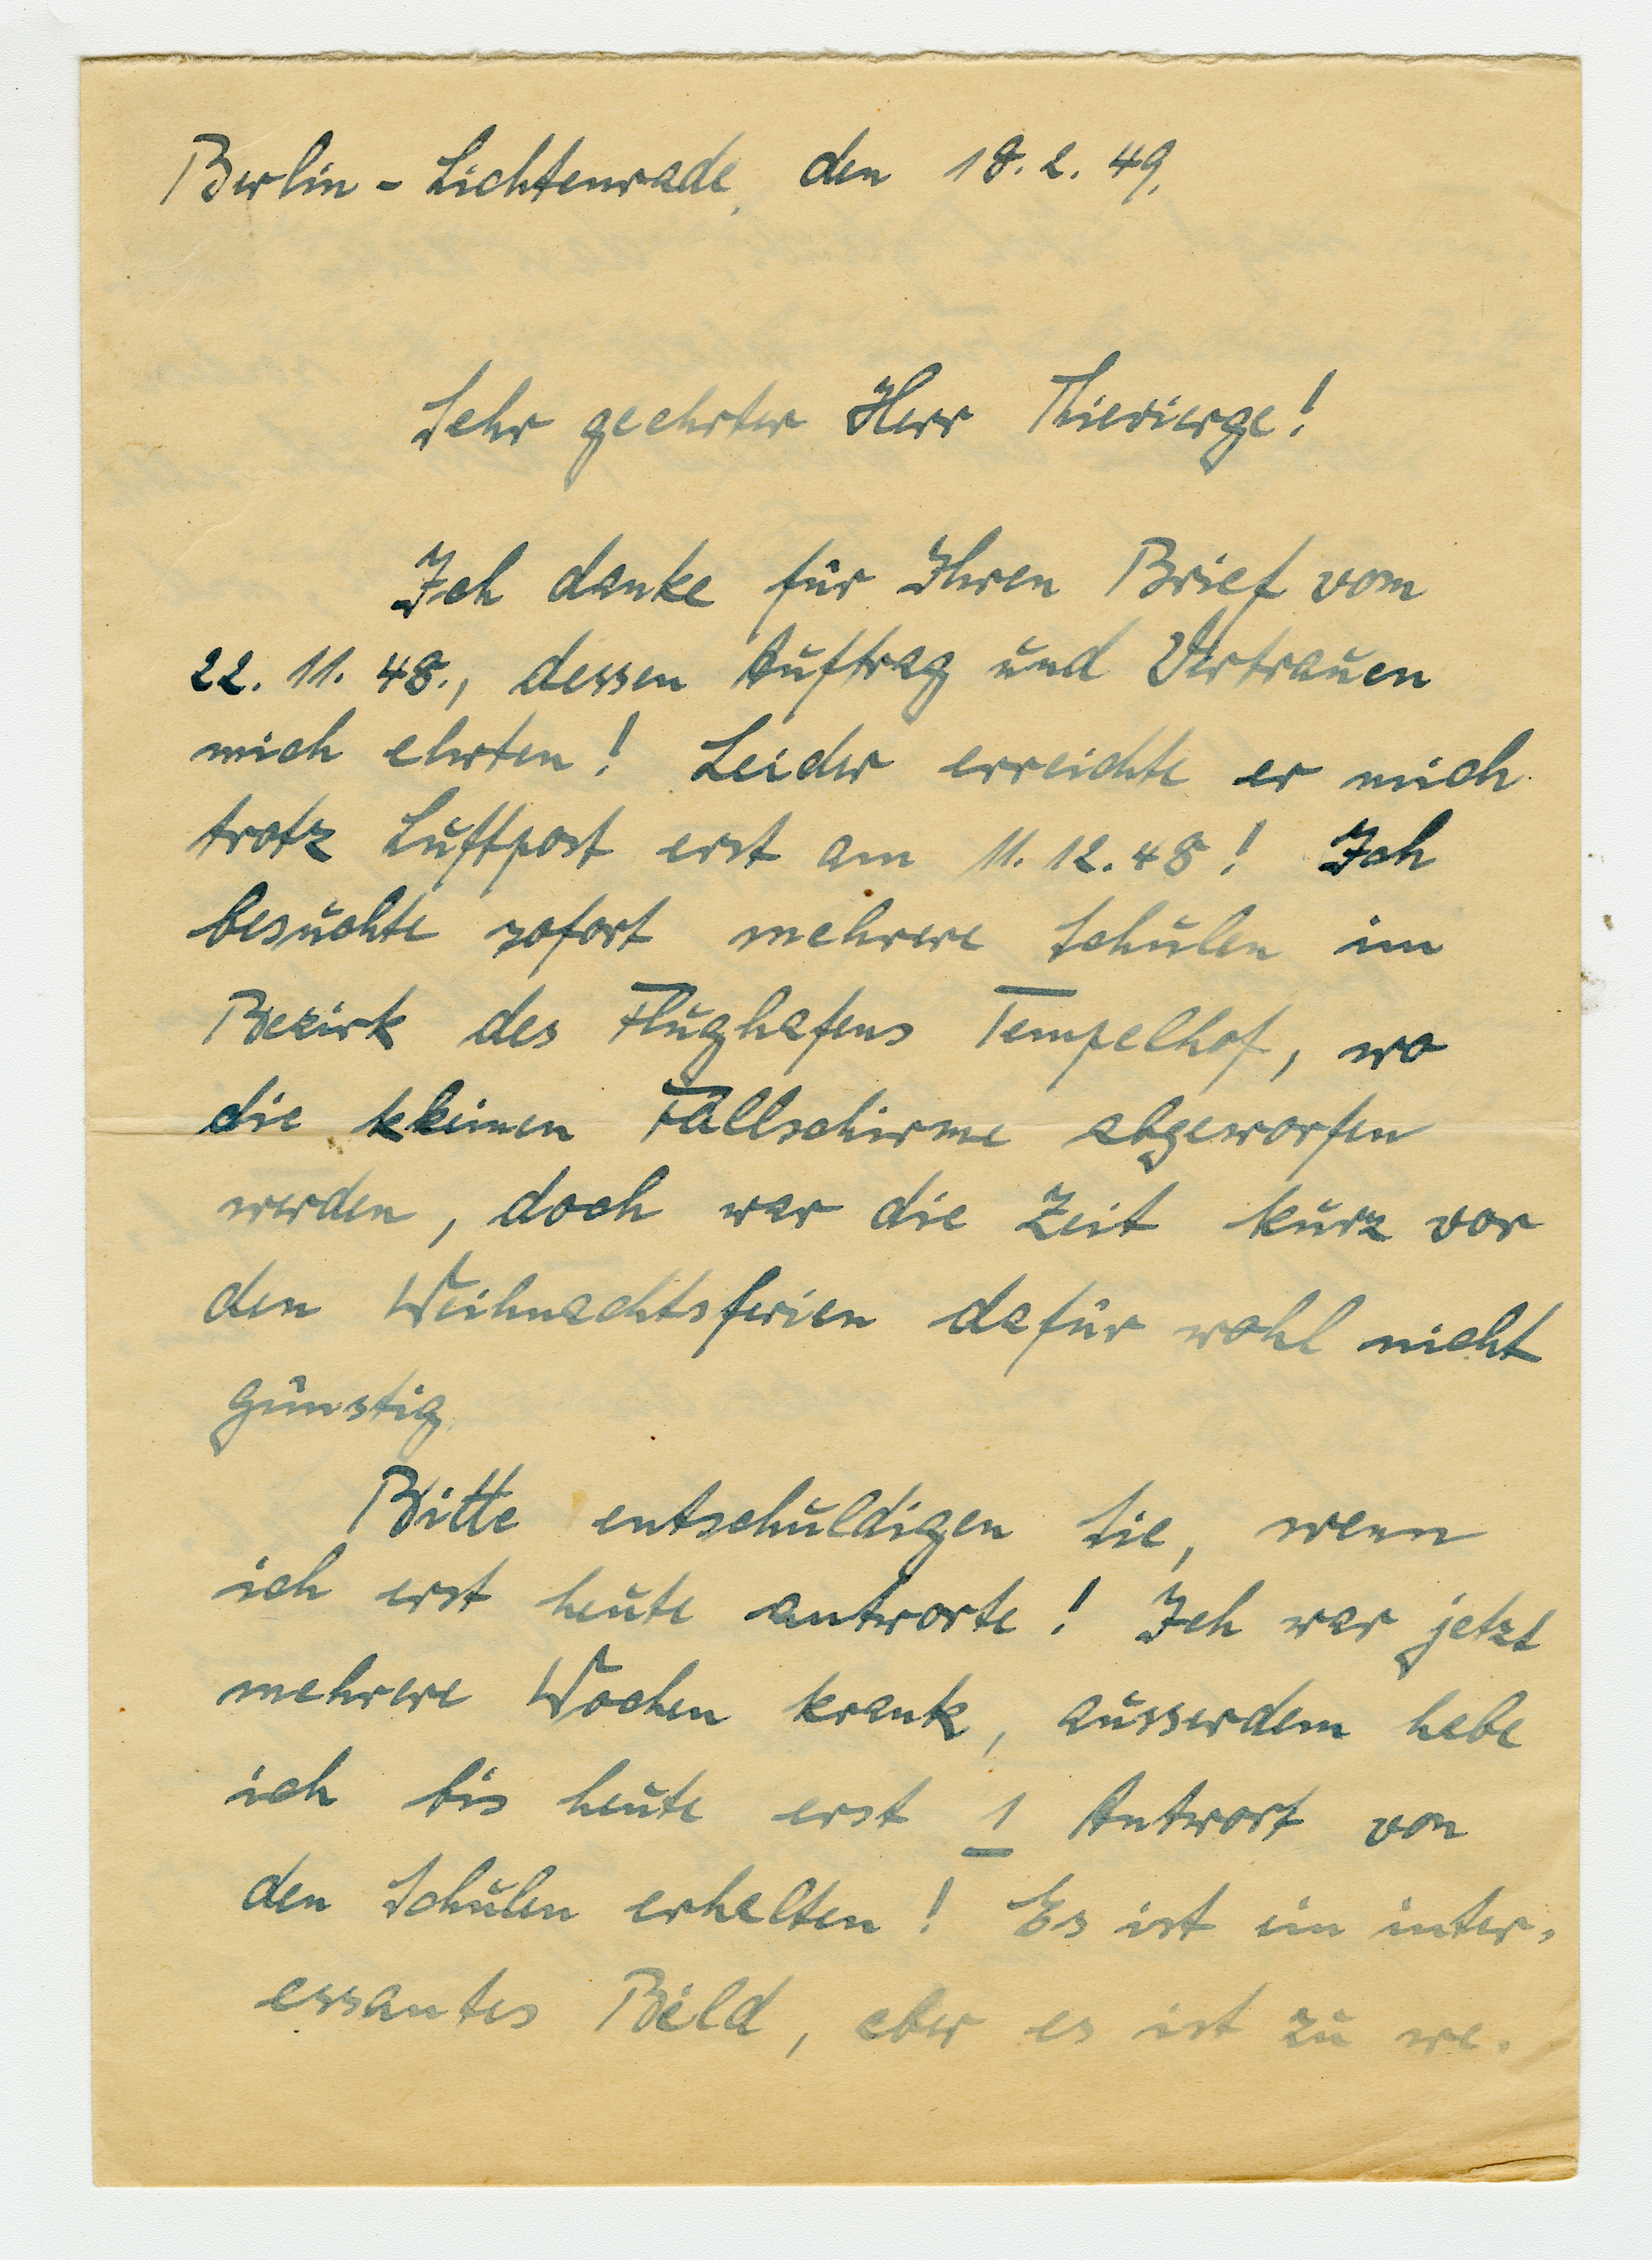 Berlin-Lichtenrade, den 18.2.49.
Sehr geehrter Herr Thievierge!
Ich danke für Ihren Brief vom
22.11.48., dessen Auftrag und Vertrauen
mich ehrten! Leider erreichte er mich
trotz Luftpost erst am 11.12.48! Ich
besuchte sofort mehrere Schulen im
Bezirk des Flughafens Tempelhof, wo
die kleinen Fallschirme abgeworfen
werden, doch war die Zeit kurz vor
den Weihnachtsferien dafür wohl nicht
günstig.
Bitte entschuldigen Sie, wenn
ich erst heute antworte! Ich war jetzt
mehrere Wochen krank, ausserdem habe
ich bis heute erst 1 Antwort von
den Schulen erhalten! Es ist ein inter-
essantes Bild, aber es ist zu we-